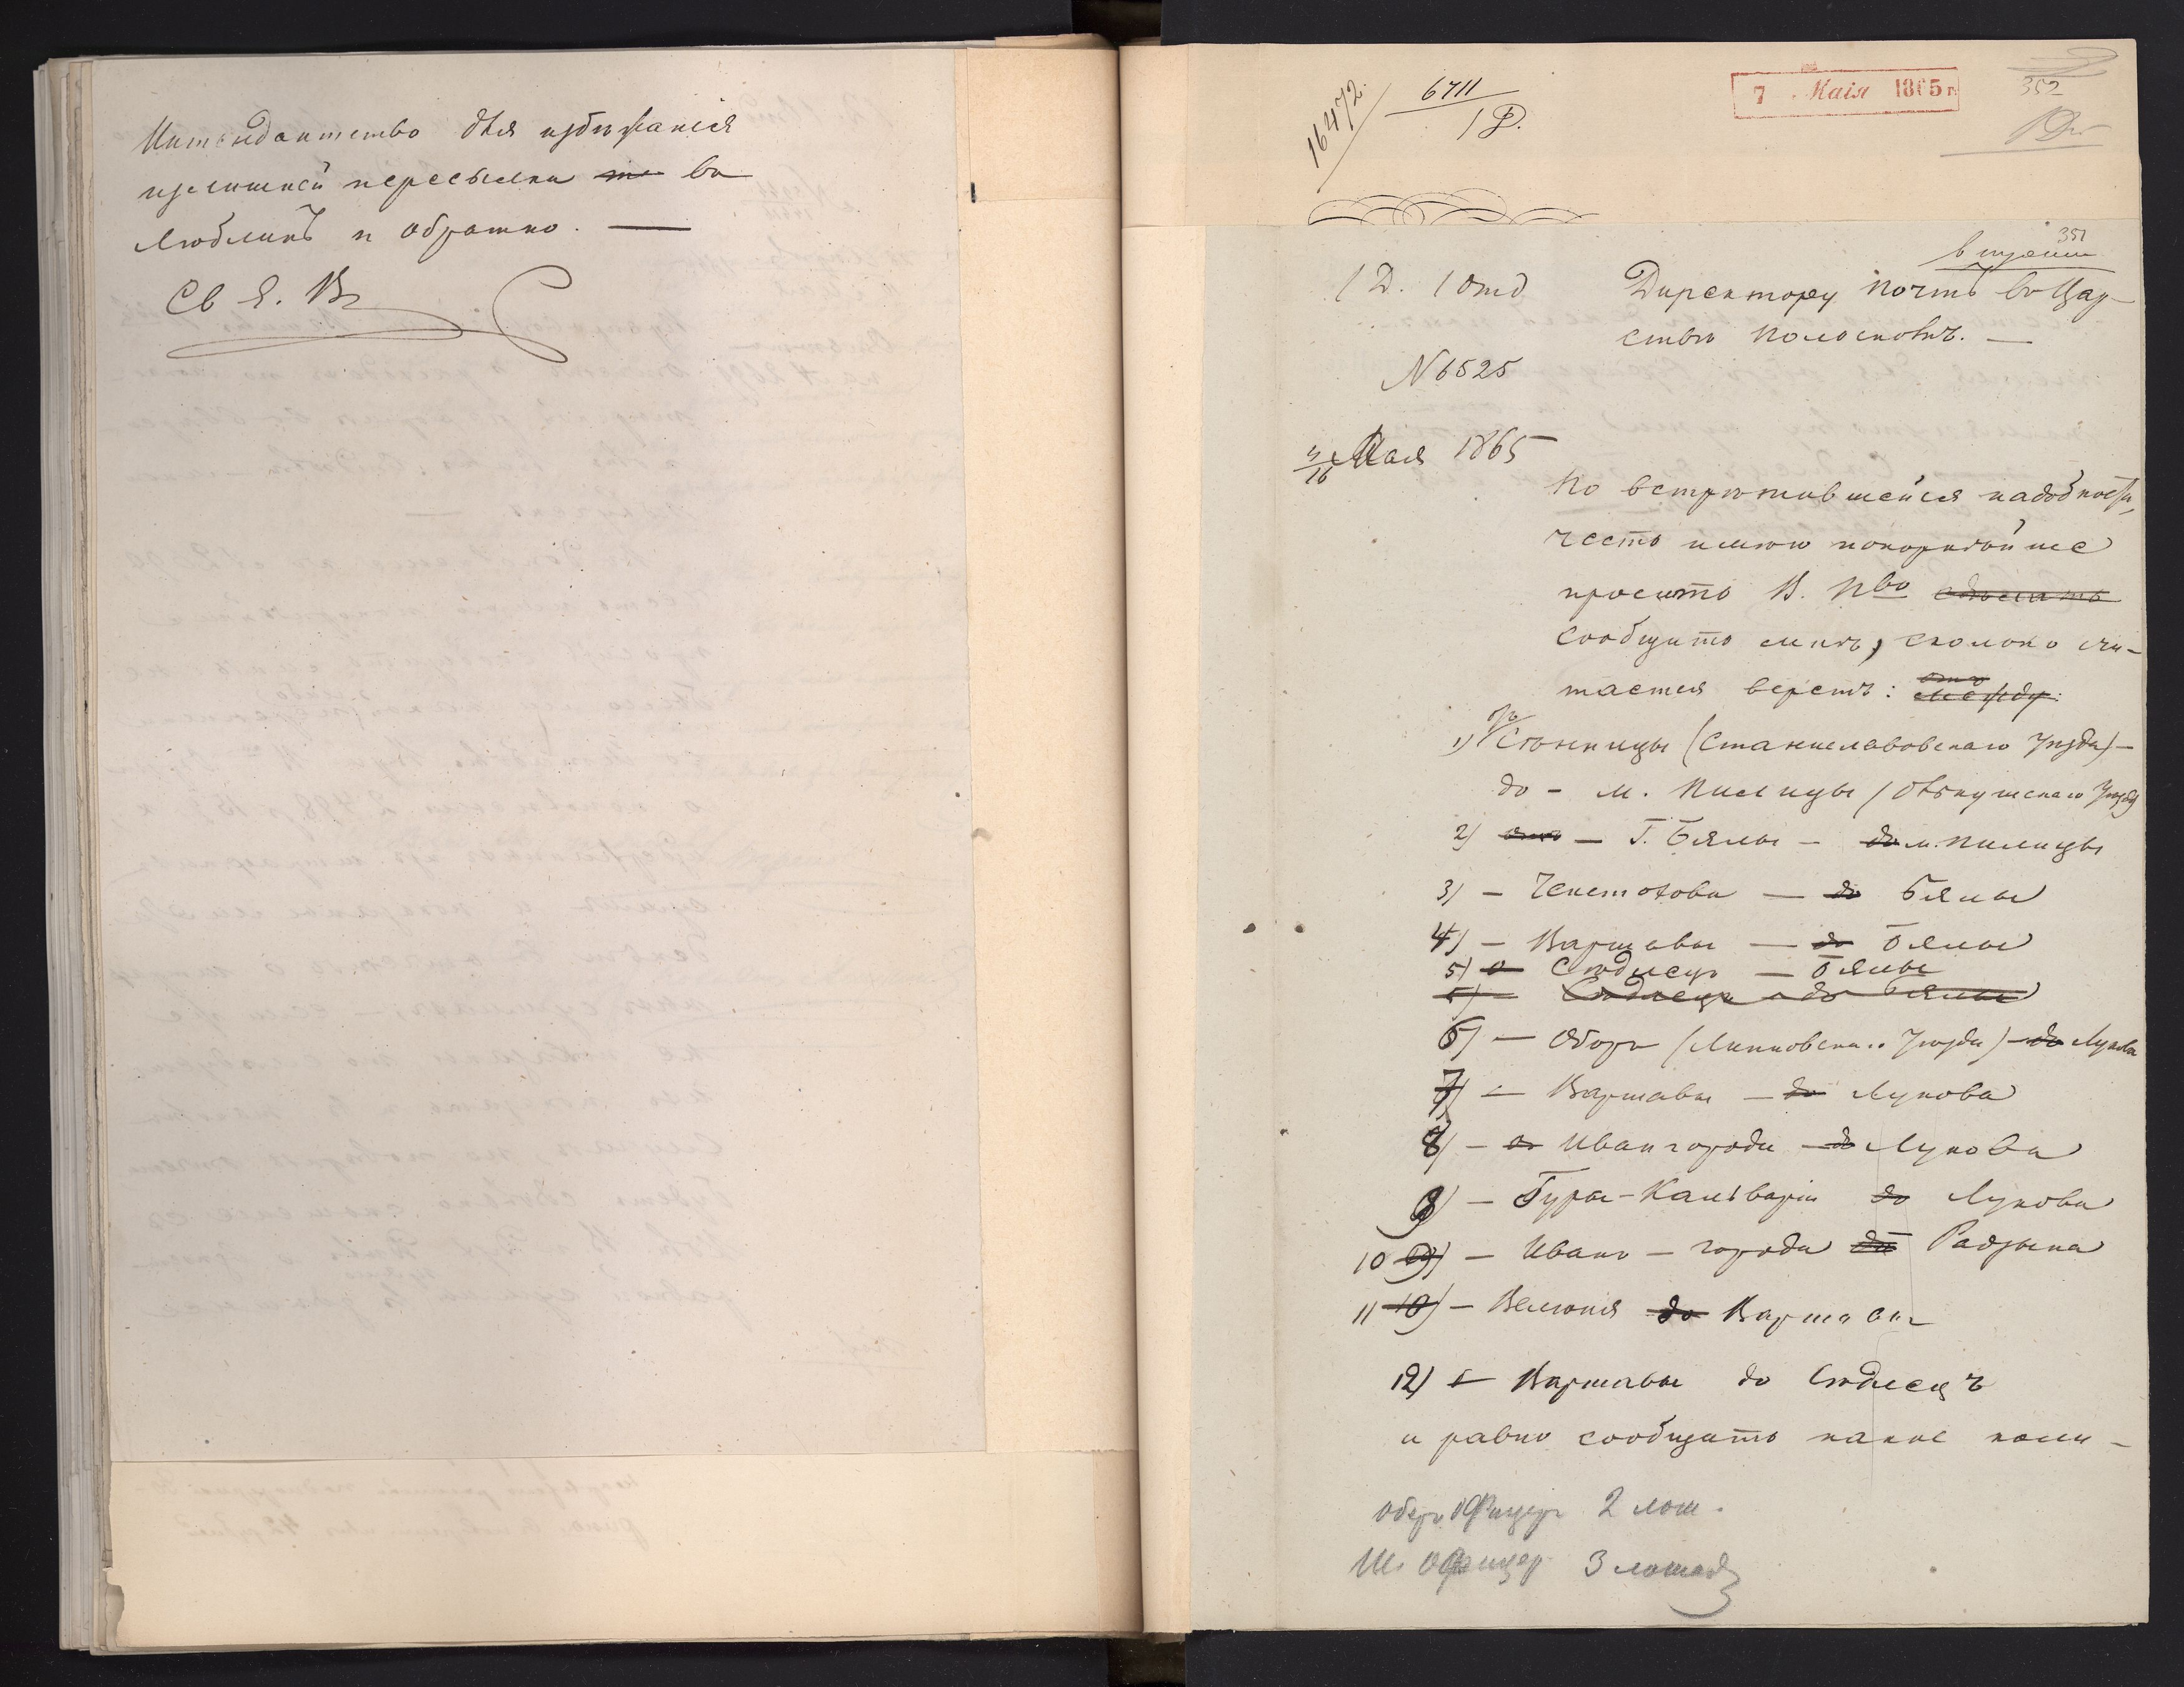 Интендантство для избѣжанія
излишней пересылки во
Люблинъ и обратно. —
16472
6711
1 Д.
7 Маія 1865 г.
352
351
1 Д. 1 отд
Директору почтъ въ Цар-
ствѣ Польскомъ. —
N 6525
4/16 Мая 1865
По встрѣтившейся надобности,
честь имѣю покорнѣйше
просить В. Пво
сообщить мнѣ, сколько счи-
тается верстъ: между:
1) отъ Сѣнницы (Станиславовскаго Уѣзда) —
до - м. Пилицы (Олькушскаго Уѣзда
2) отъ — Г. Бялы — до м. Пилицы
3) — Ченстохова — до Бялы
4) — Варшавы — до Бялы
5) о Сѣдлецъ — Бялы
5) — Сѣдлецъ до Бялы
6) — Оборъ (Липновскаго Уѣзда) — до Лукова
7) — Варшавы — до Лукова
8) — Ивангорода — до Лукова
9) — Гуры-Кальваріи до Лукова
10 9) — Иванъ-города до Радзына
11 10) — Велюня до Варшавы
12) — Варшавы до Сѣдлецъ
и равно сообщить какое коли-
оберъ Офицеръ 2 лош.
Ш. Офицер 3 лошад